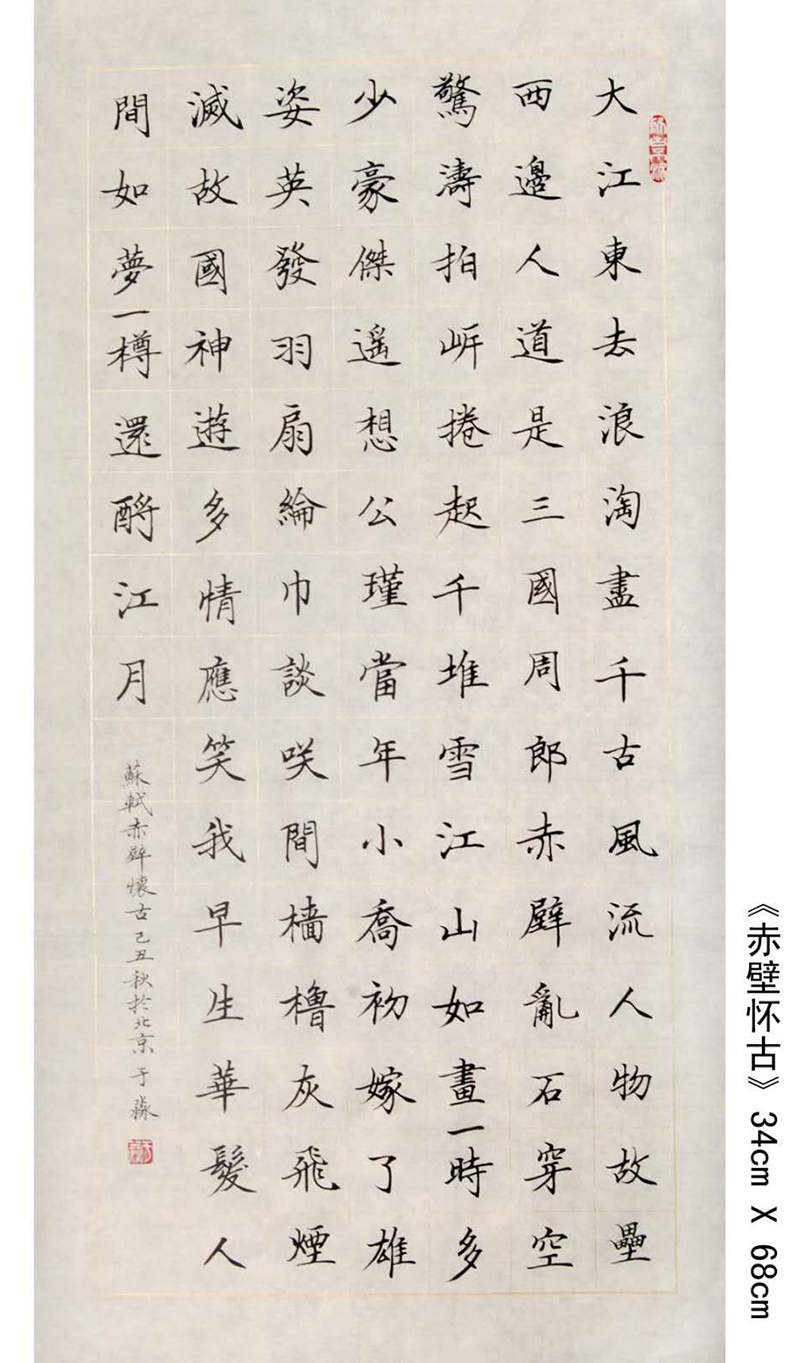 大江東去浪淘盡千古風流人物故壘
西邊人道是三國周郎赤壁亂石穿空
驚濤拍岍捲起千堆雪江山如畫一時多
少豪傑遥想公瑾當年小喬初嫁了雄
姿英發羽扇綸巾談咲間檣櫓灰飛煙
滅故國神遊多情應笑我早生華髮人
間如夢一樽還酹江月
蘇軾赤壁懷古己丑秋於北京于淼
《赤壁怀古》34cm X 68cm